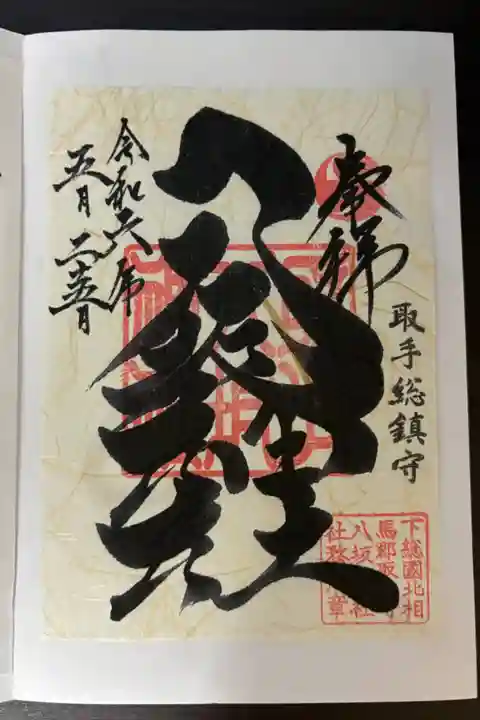 奉拝
取手総鎮守
八坂神社
令和六年
五月二十五日
下総國北相
馬郡取手
八坂神社
社務所之章